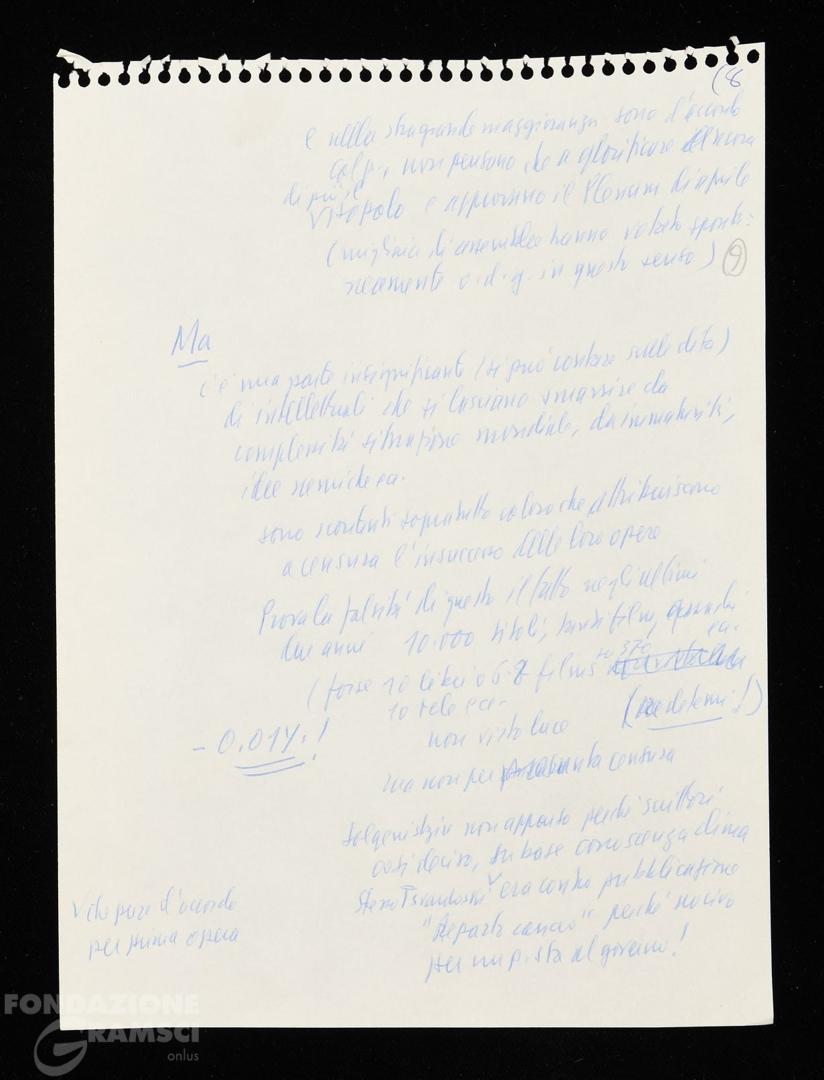 (8
e nella stragrande maggioranza sono d'accordo
col p., non pensono che a glorificare ancora
di più il
popolo e approvano il Plenum di aprile
(migliaia di assemblee hanno votato sponta-
neamente o.d.g. in questo senso) 9
Ma
c'è una parte insignificante (si può contare sulle dita)
di intellettuali che si lasciano smarrire da
complessità situazione mondiale, da immaturità,
idee nemiche ec.
sono scontenti sopratutto coloro che attribuiscono
a censura l'insuccesso delle loro opere
Prova la falsità di questo il fatto negli ultimi
due anni 10.000 titoli, films, ec.
(forse 10 libri o 6-8 films su 370
10 tele ec. (vedetemi!)
- 0.01%!
non visto luce
ma non per censura
Solgenistzin non apparso perché scrittori
così deciso, su base conoscenza clima
stesso Tvardovski era contro pubblicazione
"Reparto cancro" perché nocivo
per un p. sta al governo!
che pure d'accordo
per prima opera
FONDAZIONE
GRAMSCI
onlus